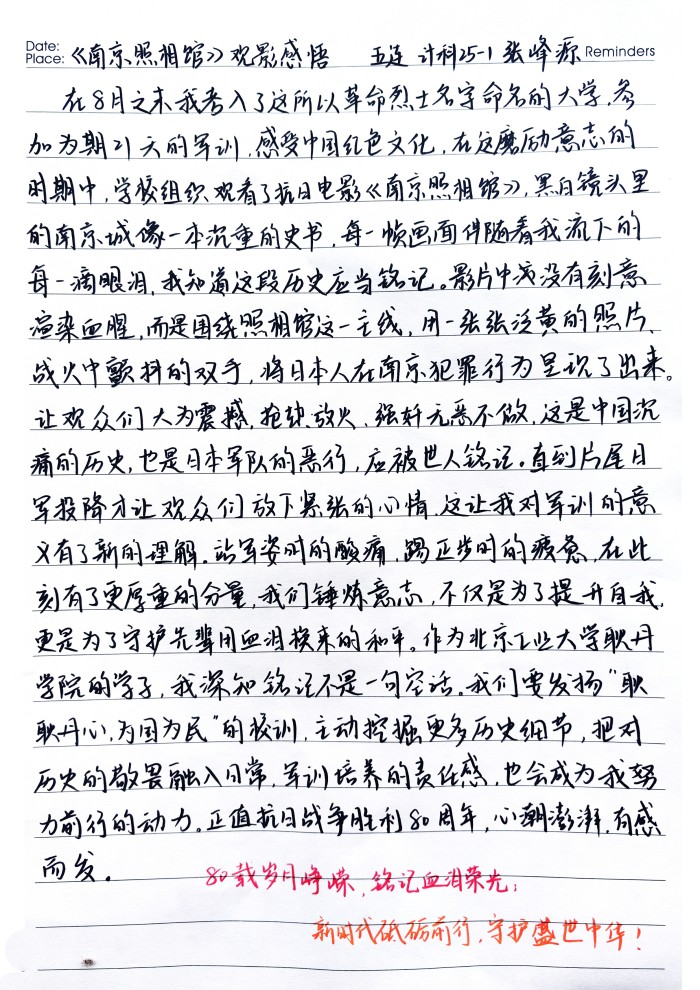 Date:
Place: 《南京照相馆》观影感悟 五连 计科25-1 张峰源 Reminders
在8月之末我考入了这所以革命烈士名字命名的大学,参
加为期21天的军训,感受中国红色文化,在这磨励意志的
时期中,学校组织观看了抗日电影《南京照相馆》,黑白镜头里
的南京城像一本沉重的史书,每一帧画面伴随着我流下的
每一滴眼泪,我知道这段历史应当铭记。影片中没有刻意
渲染血腥,而是围绕照相馆这一主线,用一张张泛黄的照片、
战火中颤抖的双手,将日本人在南京犯罪行为呈现了出来。
让观众们大为震撼,抢缺放火、强奸无恶不做,这是中国沉
痛的历史,也是日本军队的恶行,应被世人铭记。直到片尾日
军投降才让观众们放下紧张的心情,这让我对军训的意
义有了新的理解。站军姿时的酸痛,踢正步时的疲惫,在此
刻有了更厚重的分量,我们锤炼意志,不仅是为了提升自我,
更是为了守护先辈用血泪换来的和平。作为北京工业大学耿丹
学院的学子,我深知铭记不是一句空话。我们要发扬“耿
耿丹心,为国为民”的校训,主动挖掘更多历史细节,把对
历史的敬畏融入日常,军训培养的责任感,也会成为我努
力前行的动力。正值抗日战争胜利80周年,心潮澎湃,有感
而发。
80载岁月峥嵘,铭记血泪荣光;
新时代砥砺前行,守护盛世中华!